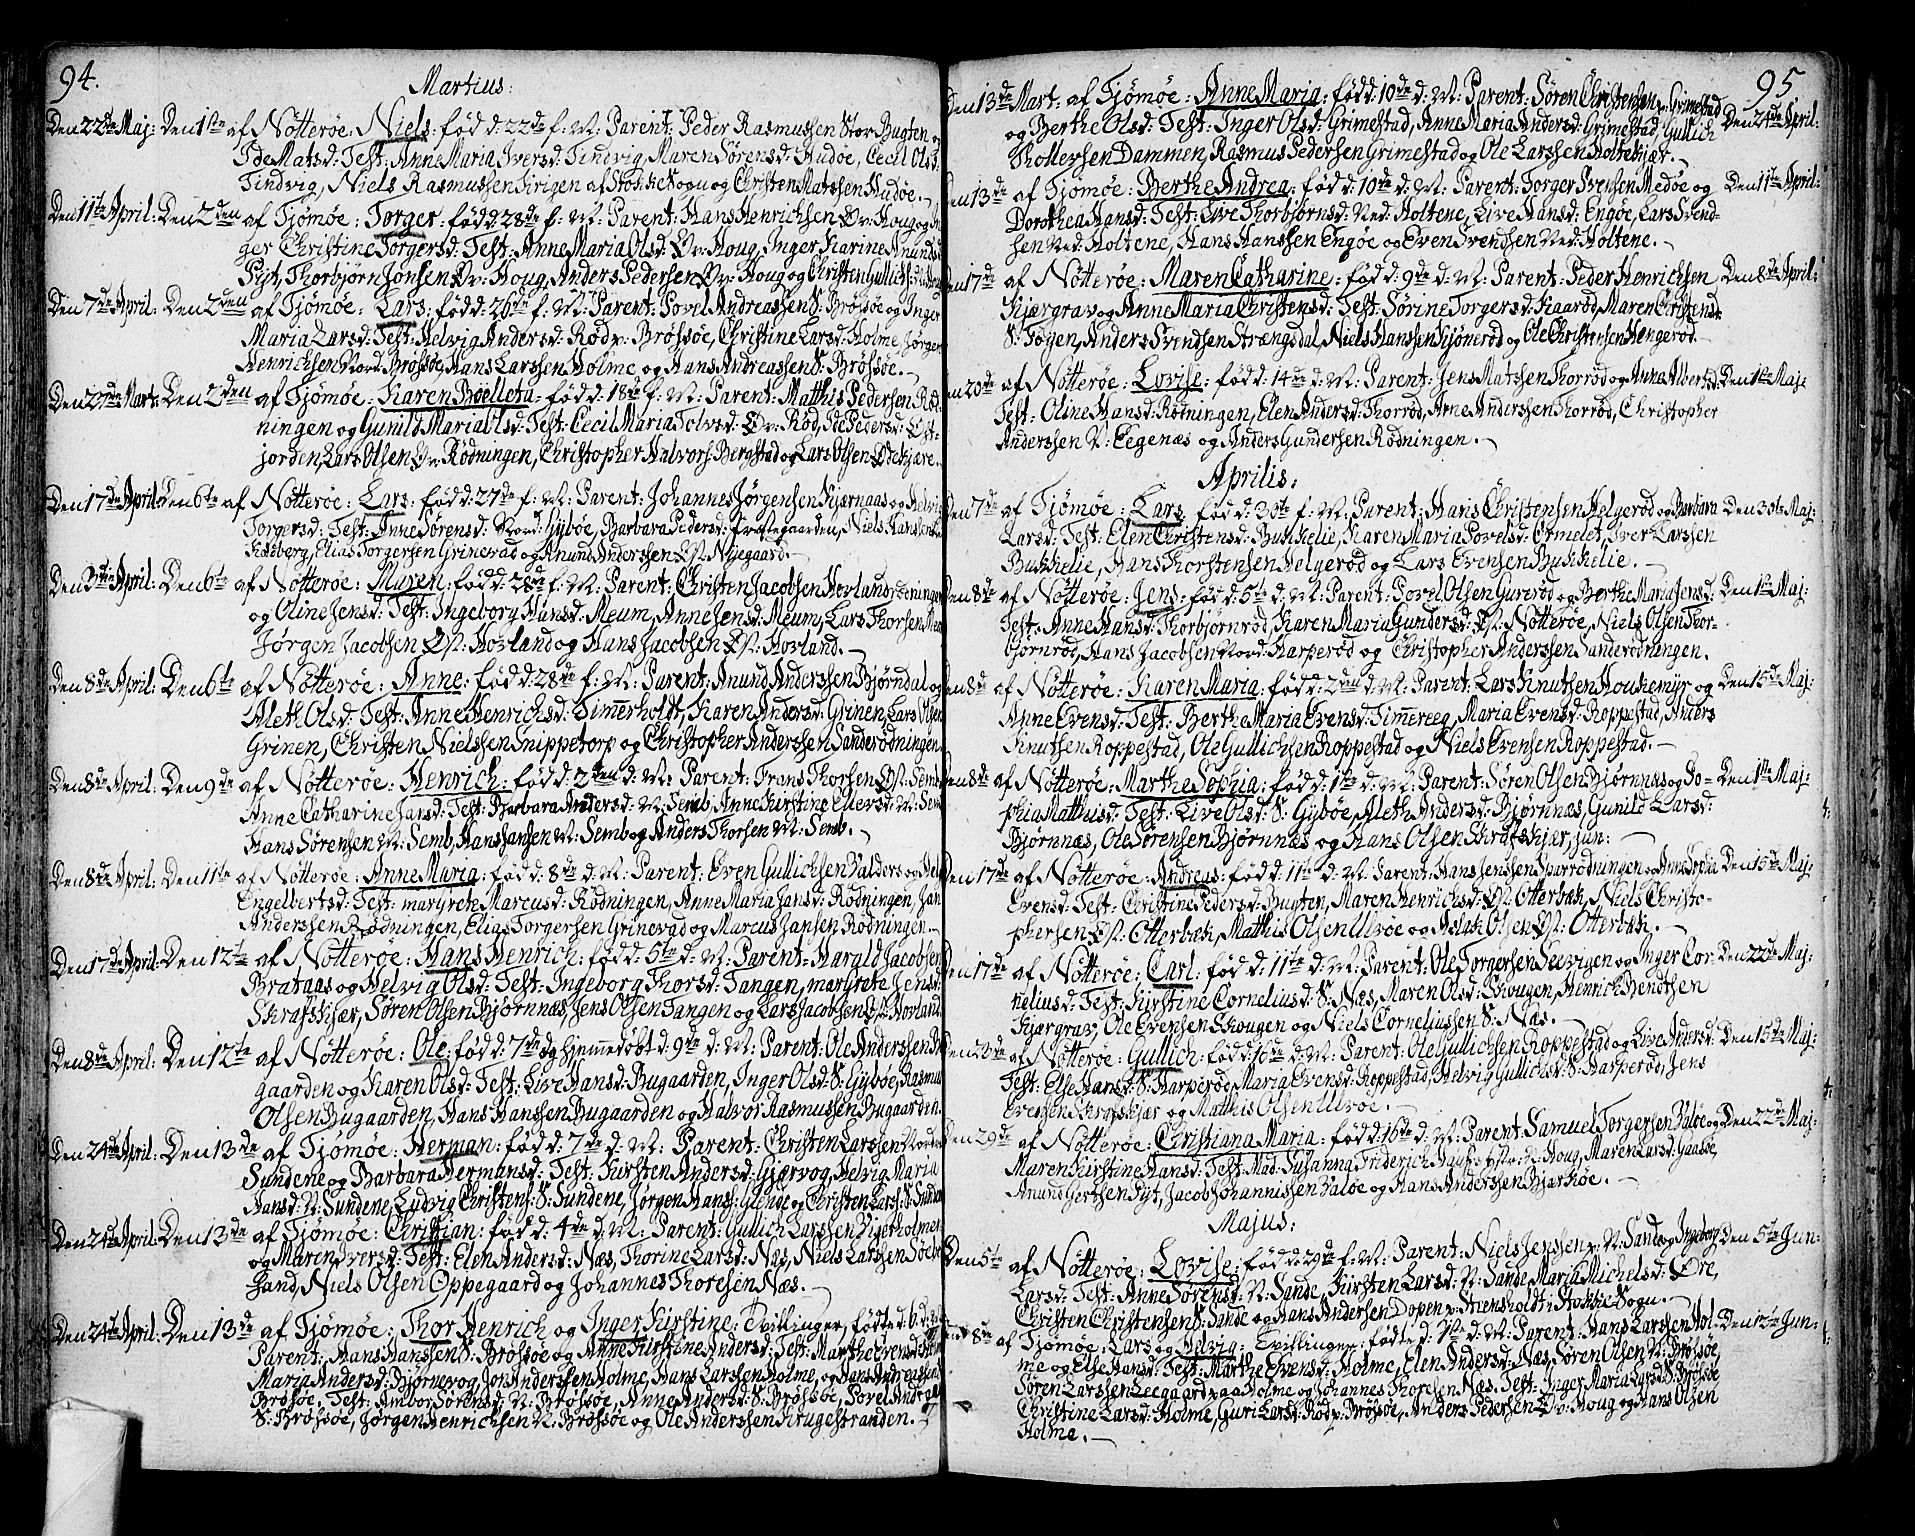 94.
Martius:
Den 22de Maj: Den 1ste af Nötteröe: Niels: föd d: 22de f: M: Parent: Peder Rasmussen Stor Bugten og
Ide Matsd: Test: Anne Maria Iversd: Tindvig, Maren Sörensd: Hudöe, Cecil Olsd:
Tindvig, Niels Rasmussen Firigen af Stokke Sogn og Christen Matssen Hudöe.
Den 11te April: Den 2den af Tjömöe: Torger: född: 28de f: M: Parent: Hans Henrichsen Öv: Houg og In-
ger Christine Torgersd: Test: Anne Maria Olsd: Öv: Houg, Inger Karine Anundsd:
Pyt, Thorbjörn Jonsen Öv: Houg, Anders Pedersen Öv: Houg og Christen Gullichs:
Den 7de April: Den 2den af Tjömöe: Lars: född: 26de f: M: Parent: Povel Andreassen S: Bröfsöe og Inger
Maria Larsd: Test: Helvig Andersd: Röd v: Bröfsöe, Christine Larsd: Holme, Jörgen
Henrichsen Nord: Bröfsöe, Hans Larssen Holme og Hans Andreassen S: Bröfsöe.
Den 27de Mart: Den 2den af Tjömöe: Karen Boelleta: född: 18de f: M: Parent: Matthis Pedersen Röd-
ningen og Gunild Maria Olsd: Test: Cecil Maria Tolvsd: Öv: Röd, Ide Pedersd: Öst-
jorden, Lars Olsen Öv: Rödningen, Christopher Halvors: Bergstad og Lars Olsen Östekjære.
Den 17de April: Den 6te af Nötteröe: Lars: född: 27de f: M: Parent: Johannes Jörgensen Kjærnaas og Helvig
Torgersd: Test: Anne Sörensd: Nord: Gyböe, Barbara Pedersd: Præstegaarden, Niels Hansen
Kaaberg, Elias Torgersen Grinevad og Anund Anderssen Öst: Nyegaard.
Den 3die April: Den 6te af Nötteröe: Maren: född: 28de f: M: Parent: Christen Jacobsen Hovland
og Oline Jensd: Test: Ingeborg Hansd: Meum, Anne Jensd: Meum, Lars Thorsen Meum
Jörgen Jacobsen Öst: Hovland og Hans Jacobsen Öst: Hovland.
Den 8de April: Den 6te af Nötteröe: Anne: född: 28de f: M: Parent: Anund Anderssen Björndal og
Aleth Olsd: Test: Anne Henrichsd: Timmerholdt, Karen Andersd: Grinen, Lars Olsen
Grinen, Christen Nielssen Snippetorp og Christopher Anderssen Sanderödningen.
Den 8de April: Den 9de af Nötteröe: Henrich: född: 2den d: M: Parent: Frans Thorsen Öst: Semb
Anne Catharine Jansd: Test: Barbara Andersd: M: Semb, Anne Kirstine Eliersd: M: Semb
Hans Sörensen M: Semb, Hans Jansen M: Semb og Anders Thorsen M: Semb.
Den 8de April: Den 11te af Nötteröe: Anne Maria: född: 8de d: M: Parent: Even Gullichsen Balders og Helv
Engelbertsd: Test: margrete Marcusd: Rödningen, Anne Maria Jansd: Rödningen, Jan
Anderssen Rödningen, Elias Torgersen Grinevad og Marcus Jansen Rödningen.
Den 17de April: Den 12te af Nötteröe: Hans Henrich: född: 5te d: M: Parent: Harald Jacobsen
Brataas og Helvig Olsd: Test: Ingeborg Thorsd: Tangen, margrete Jensd:
Skrafskjær, Sören Olsen Björnnæs, Jens Olsen Tangen og Lars Jacobsen Öst: Hovland
Den 8de April: Den 12te af Nötteröe: Ole: född: 7de og hjemmedöbt d: 9de d: M: Parent: Ole Anderssen Bu-
gaarden og Karen Olsd: Test: Live Hansd: Bugaarden, Inger Olsd: S: Gyböe, Rasmus
Olsen Bugaarden, Hans Hanssen Bugaarden og Halvor Rasmussen Bugaarden.
Den 24de April: Den 13de af Tjömöe: Herman: född: 7de d: M: Parent: Christen Larssen Nordre
Sundene og Barbara Hermansd: Test: Kirsten Andersd: Gjervog, Helvig Maria
Hansd: N: Sundene, Ludvig Christens: S: Sundene, Jörgen Hans: Lunde og Christen Lars: S: Sunden
Den 24de April: Den 13de af Tjömöe: Christian: född: 4de d: M: Parent: Gullich Larssen Vigerholmen
og Maren Iversd: Test: Elen Andersd: Næs, Thorine Larsd: Næs, Niels Larssen Söebo
Sand, Niels Olsen Oppegaard og Johannes Thoresen Næs.
Den 24de April: Den 13de af Tjömöe: Thor Henrich og Inger Kirstine: Tvillinger, födte d: 6
Parent: Hans Hanssen S: Bröfsöe og Anne Kirstine Andersd: Test: Marthe Evensd: Holme
Maria Andersd: Bjornevog, Jon Anderssen Holme, Hans Larssen Holme, og Hans Andreassen S:
Bröfsöe, Test: Ambor Sörensd: N: Bröfsöe, Anne Andersd: S: Bröfsöe, Povel Andreas
S: Bröfsöe, Jörgen Henrichsen N: Bröfsöe og Ole Anderssen Krugestranden.
95
Den 13de Mart: af Tjömöe: Anne Maria: född: 10de d: M: Parent: Sören Christensen v: Grimestad Den 24de April:
og Berthe Olsd: Test: Inger Olsd: Grimestad, Anne Maria Andersd: Grimestad, Gullich
Thollevsen Dammen, Rasmus Pedersen Grimestad og Ole Larssen Holtekjær.
Den 13de af Tjömöe: Berthe Andrea: född: 10de d: M: Parent: Torger Svensen Medöe og Den 11te April:
Dorothea Hansd: Test: Live Thorbjörnsd: Ned: Holtene, Live Hansd: Engöe, Lars Svend-
sen Ned: Holtene, Hans Hanssen Engöe og Even Svendsen Ned: Holtene.
Den 17de af Nötteröe: Maren Catharine: född: 9de d: M: Parent: Peder Henrichsen Den 8de April:
Kjærgrav og Anne Maria Christensd: Test: Sörine Torgersd: Kaaröd, Maren Christensd:
S: Föyen, Anders Svindsen Strængsdal, Niels Hanssen Kjöneröd og Ole Christensen Hengeröd.
Den 20de af Nötteröe: Lovise: född: 14de d: M: Parent: Jens Matssen Thorröd og Anne Albertsd: Den 1ste Maj:
Test: Oline Hansd: Rödningen, Elen Andersd: Thorröd, Arne Anderssen Thorröd, Christopher
Anderssen V: Eegenæs og Anders Gundersen Rödningen.
Aprilis:
Den 7de af Tjömöe: Lars: född: 30te f: M: Parent: Hans Christensen Helgeröd og Barbara Den 30te Maj:
Larsd: Test: Elen Christensd: Bukkelie, Karen Maria Povelsd: Ormelet, Iver Larssen
Bukkelie, Hans Thorstensen Helgeröd og Lars Evensen Bukkelie.
Den 8de af Nötteröe: Jens: född: 5te d: M: Parent: Povel Olsen Gureröd og Berthe Maria Jensd: Den 1ste Maj:
Test: Anne Hansd: Thorbjornröd, Karen Maria Gundersd: Öst: Nötteröe, Niels Olsen Thor-
bjornröd, Hans Jacobsen Nord: Harperöd og Christopher Anderssen Sanderödningen.
Den 8de af Nötteröe: Karen Maria: född: 2den d: M: Parent: Lars Knutsen Houkemyr og Den 15de Maj:
Anne Evensd: Test: Berthe Maria Evensd: Timmereeg, Maria Evensd: Roppestad, Anders
Knutsen Roppestad, Ole Gullichsen Roppestad og Niels Evensen Roppestad.
Den 8de af Nötteröe: Marthe Sophia: född: 1ste d: M: Parent: Sören Olsen Bjørnnæs og So- Den 1ste Maj:
phia Matthisd: Test: Live Olsd: S: Gyböe, Aleth Andersd: Bjørnnæs, Gunild Larsd:
Bjørnnæs, Ole Sörensen Bjørnnæs og Hans Olsen Skrafskjær, jun:
Den 17de af Nötteröe: Andreas: född: 11te d: M: Parent: Hans Jenssen Sparrödningen og Anne Sophia Den 15de Maj:
Evensd: Test: Christine Pedersd: Bugten, Maren Henrichsd: Öst: Otterbæk, Niels Christo-
phersen Öst: Otterbæk, Mathis Olsen Ulvöe og Aslak Olsen Öst: Otterbæk.
Den 17de af Nötteröe: Carl: född: 11te d: M: Parent: Ole Torgersen Seevigen og Inger Cor- Den 22de Maj:
neliusd: Test: Kirstine Corneliusd: S: Næs, Maren Olsd: Skougen, Henrich Bendtsen
Kjærgrav, Ole Evensen Skougen og Niels Corneliussen S: Næs.
Den 23de af Nötteröe: Gullich: född: 16de d: M: Parent: Ole Gullichsen Roppestad og Live Andersd: Den 15de Maj:
Test: Else Hansd: S: Harperöd, Maria Evensd: Roppestad, Helvig Gullichsd: S: Harperöd, Jens
Evensen Skrafskjær og Mathis Olsen Ulvöe.
Den 29de af Nötteröe: Christiana Maria: född: 16de d: M: Parent: Samuel Torgersen Valöe og Den 22de Maj:
Maren Kirstine Hansd: Test: Mad: Susanna Friderich Öst: Houg, Maren Larsd: Gaasöe,
Anund Gertsen Pyt, Jacob Johannissen Valöe og Hans Anderssen Bjærköe.
Majus:
Den 5te af Nötteröe: Lovise: född: 29de f: M: Parent: Niels Jenssen v: N: Sande og Ingeborg Den 5te Jun:
Larsd: Test: Anne Sörensd: N: Sande, Kirsten Larsd: N: Sande, Maria Michelsd: Öre,
Christen Christensen S: Sande og Hans Andersen Dopen v: Steensholdt i Stokke Sogn.
Den 8de af Tjömöe: Lars og Helvig: Tvillinger: födte d: 1ste d: M: Parent: Hans Larssen Hol- Den 12te Jun:
me og Else Hansd: Test: Marthe Evensd: Holme, Elen Andersd: Næs, Sören Olsen N: Bröfsöe,
Sören Larssen Leegaard paa Holme og Johannes Thoresen Næs. Test: Inger Maria Larsd: S: Bröfsöe
Christine Larsd: Holme, Guri Larsd: Röd v: Bröfsöe, Anders Pedersen Öv: Houg og Hans Olsen
Holme.